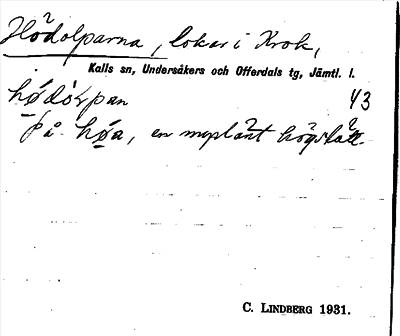 Hödolparna, lokar i Krok,
Kalls sn, Undersåkers och Offerdals tg, Jämtl. l.
hødòʟpan 43
på høa, en myslänt högslått.
C. LINDBERG 1931.